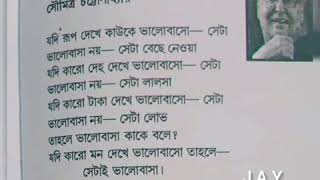 সৌমিত্র চট্টোপাধ্যায়
যদি রূপ দেখে কাউকে ভালোবাসো— সেটা
ভালোবাসা নয়— সেটা বেছে নেওয়া
যদি কারো দেহ দেখে ভালোবাসো— সেটা
ভালোবাসা নয়— সেটা লালসা
যদি কারো টাকা দেখে ভালোবাসো— সেটা
ভালোবাসা নয়— সেটা লোভ
তাহলে ভালোবাসা কাকে বলে?
যদি কারো মন দেখে ভালোবাসো তাহলে—
সেটাই ভালোবাসা।
JAY